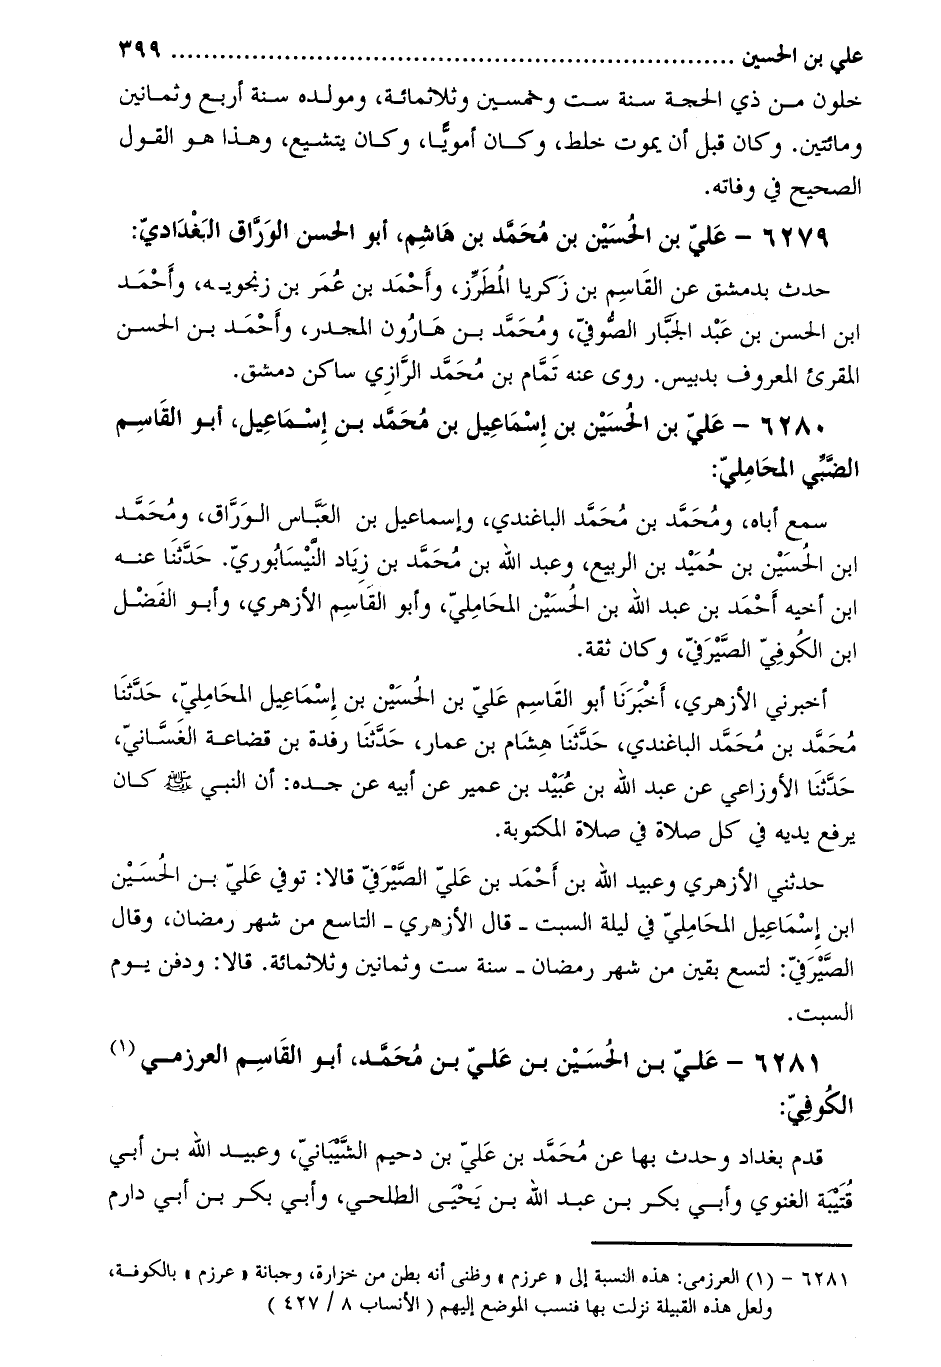 علي بن الحسين ........................................................................ ٣٩٩
خلون من ذي الحجة سنة ست وخمسين وثلاثمائة، ومولده سنة أربع وثمانين
ومائتين. وكان قبل أن يموت خلط، وكان أمويًّا، وكان يتشيع، وهذا هو القول
الصحيح في وفاته.
٦٢٧٩ - عَليّ بن الحُسَيْن بن مُحَمَّد بن هَاشِم، أبو الحسن الوَرَّاق البَغْدَاديّ:
حدث بدمشق عن القَاسِم بن زَكريا المُطَرِّز، وأَحْمَد بن عُمَر بن زنجويه، وأَحْمَد
ابن الحسن بن عَبْد الجَبَّار الصُّوفيّ، ومُحَمَّد بن هَارُون المجدر، وأَحْمَد بن الحسن
المقرئ المعروف بدبيس. روى عنه تَمَّام بن مُحَمَّد الرَّازِي ساكن دمشق.
٦٢٨٠ - عَليّ بن الحُسَيْن بن إسْمَاعِيل بن مُحَمَّد بن إسْمَاعِيل، أبو القَاسِم
الضَّبِّي المحَامِليّ:
سمع أباه، ومُحَمَّد بن مُحَمَّد الباغندي، وإسماعيل بن العَبَّاس الورَّاق، ومُحَمَّد
ابن الحُسَيْن بن حُمَيْد بن الربيع، وعبد الله بن مُحَمَّد بن زيَاد النَّيْسَابُوريّ. حَدَّثَنَا عنه
ابن أخيه أَحْمَد بن عبد الله بن الحُسَيْن المحَامِليّ، وأبو القَاسِم الأزهري، وأبو الفَضْل
ابن الكُوفِيّ الصَّيْرَفيّ، وكان ثقة.
أخبرني الأزهري، أَخْبَرَنَا أبو القَاسِم عَليّ بن الحُسَيْن بن إسْمَاعِيل المحَامليّ، حَدَّثَنَا
مُحَمَّد بن مُحَمَّد الباغندي، حَدَّثَنَا هِشَام بن عمار، حَدَّثَنَا رفدة بن قضاعة الغَسَّانيّ،
حَدَّثَنَا الأوزاعي عن عبد الله بن عُبَيْد بن عمير عن أبيه عن جده: أن النبي ﷺ كان
يرفع يديه في كل صلاة في صلاة المكتوبة.
حدثني الأزهري وعبيد الله بن أَحْمَد بن عَليّ الصَّيْرَفيّ قالا: توفي عَليّ بن الحُسَيْن
ابن إسْمَاعِيل المحَامِليّ في ليلة السبت - قال الأزهري - التاسع من شهر رمضان، وقال
الصَّيْرَفيّ: لتسع بقين من شهر رمضان - سنة ست وثمانين وثلاثمائة. قالا: ودفن يوم
السبت.
٦٢٨١ - عَليّ بن الحُسَيْن بن عَليّ بن مُحَمَّد، أبو القَاسِم العرزمي (١)
الكُوفِيّ:
قدم بغداد وحدث بها عن مُحَمَّد بن عَليّ بن دحيم الشَّيْبَانيّ، وعبيد الله بن أبي
قُتَيْبَة الغنوي وأبي بكر بن عبد الله بن يَحْيَى الطلحي، وأبي بكر بن أبي دارم
٦٢٨١ - (١) العرزمى: هذه النسبة إلى « عرزم » وظنى أنه بطن من خزارة، وجبانة « عرزم » بالكوفة،
ولعل هذه القبيلة نزلت بها فنسب الموضع إليهم ( الأنساب ٨ / ٤٢٧ )